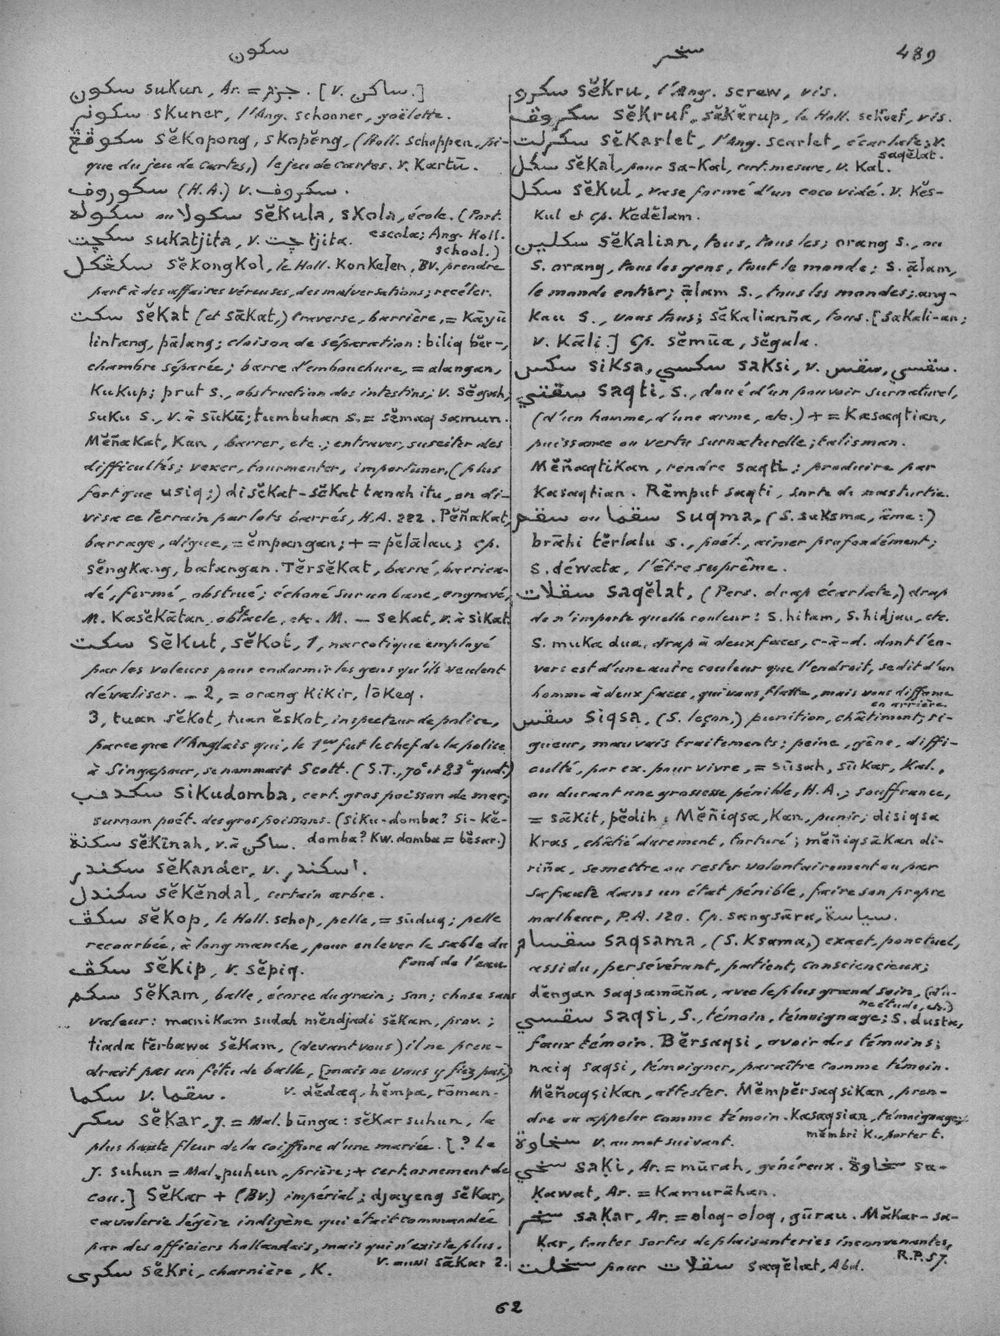 سكون
سخر
489
سكون sukun, Ar. = جزم. [v. ساكن.]
سكونر skuner, l'Ang. schooner, goëlette.
سكوڤڠ sĕkopong, skopĕng, (Holl. schoppen, pi-
que du jeu de cartes,) le jeu de cartes. v. Kartū.
سكوروف (H.A.) v. سكروف.
سكوله ou سكولا sĕkula, skola, école. (Port.
escola; Ang. Holl.
school.)
سكچت sukatjita, v. چت tjita.
سكڠكل sĕkongkol, le Holl. Konkelen, BV. prendre
part à des affaires véreuses, des malversations; recéler.
سكت sĕkat (et sākat,) traverse, barrière, = Kāyū
lintang, pālang; cloison de séparation: biliq bĕr-,
chambre séparée; barre d'embouchure, = alangan,
Kukup; prut s., obstruction des intestins; v. sĕgah,
suku s., v. à sūkū; tumbuhan s. = sĕmaq samun.
Mĕñakat, Kan, barrer, etc.; entraver, susciter des
difficultés; vexer, tourmenter, importuner, (plus
fort que usiq;) disĕkat-sĕkat tanah itu, on di-
visa ce terrain par lots barrés, H.A. 222. Pĕñakat,
barrage, digue, = ĕmpangan; + = pĕlālau; cp.
sĕngkang, batangan. Tĕrsĕkat, barré, barrica-
dé, fermé, obstrué; échoué sur un banc, engravé,
M. Kasĕkātan, obstacle, etc. M. — sekat, v. à sikat
سكت sĕkut, sĕkot, 1, narcotique employé
par les voleurs pour endormir les gens qu'ils veulent
dévaliser. — 2, = orang kikir, lōkeq.
3, tuan sĕkot, tuan ĕskot, inspecteur de police,
parce que l'Anglais qui, le 1er, fut le chef de la police
à Singapour, se nommait Scott. (S.T., 70e et 83e quat.)
سكدمب sikudomba, cert. gros poisson de mer;
surnom poét. des gros poissons. (siku-domba? Si-kĕ-
domba? Kw. domba = bĕsar.)
سكنة sĕkīnah, v. à ساكن.
سكندر sĕkander, v. اسكندر.
سكندل sĕkĕndal, certain arbre.
سكڤ sĕkop, le Holl. schop, pelle, = sūduq; pelle
recourbée, à long manche, pour enlever le sable du
fond de l'eau
سكڤ sĕkip, v. sĕpiq.
سكم sĕkam, balle, écorce du grain; son; chose sans
valeur: manikam sudah mĕndjadi sĕkam, prov.;
tiada tĕrbawa sĕkam, (devant vous) il ne pren-
drait pas un fétu de balle, [mais ne vous y fiez pas;)
v. dĕdaq, hĕmpa, rōman-
سكما v. سقما.
سكر sĕkar, J. = Mal. būnga: sĕkar suhun, la
plus haute fleur de la coiffure d'une mariée. [? Le
J. suhun = Mal. puhun, prière; + cert. ornement de
cou.] Sĕkar + (Bv.) impérial; djayeng sĕkar,
cavalerie légère indigène qui était commandée
par des officiers hollandais, mais qui n'existe plus.
v. aussi sākar 2.
سكري sĕkri, charnière, K.
سكرو sĕkru, l'Ang. screw, vis.
سكروف sĕkruf, sĕkĕrup, le Holl. schroef, vis.
سكرلت sĕkarlet, l'Ang. scarlet, écarlate; v.
saqĕlat.
سكل sĕkal, pour sa-kal, cert. mesure, v. Kal.
سكل sĕkul, vase formé d'un coco vidé. v. Kĕs-
kul et cp. Kĕdĕlam.
سكلين sĕkalian, tous, tous les; orang s., ou
s. orang, tous les gens, tout le monde; s. ālam,
le monde entier; ālam s., tous les mondes; ang-
kau s., vous tous; sĕkalianña, tous. [sakali-an;
v. Kāli.] Cp. sĕmūa, sĕgala.
سكس siksa, سكسي saksi, v. سقسي, سقس.
سقتي saqti, S., doué d'un pouvoir surnaturel,
(d'un homme, d'une arme, etc.) + = Kasaqtian,
puissance ou vertu surnaturelle; talisman.
Mĕñaqtikan, rendre saqti; produire par
Kasaqtian. Rĕmput saqti, sorte de nasturtie.
سقم ou سقما suqma, (S. suksma, âme:)
brāhi tĕrlalu s., poét., aimer profondément;
s. déwata, l'être suprême.
سقلات saqĕlat, (Pers. drap écarlate,) drap
de n'importe quelle couleur: s. hitam, s. hidjau, etc.
s. muka dua, drap à deux faces, c.-à-d. dont l'en-
vers est d'une autre couleur que l'endroit, se dit d'un
homme à deux faces, qui vous flatte, mais vous diffame
en arrière.
سقس siqsa, (S. leçon,) punition, châtiment; ri-
gueur, mauvais traitements; peine, gêne, diffi-
culté, par ex. pour vivre, = sūsah, sūkar, Kal.,
ou durant une grossesse pénible, H.A.; souffrance,
= sākit, pĕdih. Mĕñiqsa, Kan, punir; disiqsa
Kras, châtié durement, torturé; mĕñiqsākan di-
riña, se mettre ou rester volontairement ou par
sa faute dans un état pénible, faire son propre
malheur, P.A. 120. Cp. sangsāra, سياسة.
سقسام saqsama, (S. Ksama,) exact, ponctuel,
assidu, persévérant, patient, consciencieux;
dĕngan saqsamāña, avec le plus grand soin, (d'u-
ne étude, etc.)
سقسي saqsi, S., témoin, témoignage; S. dusta,
faux témoin. Bĕrsaqsi, avoir des témoins;
naiq saqsi, témoigner, paraître comme témoin.
Mĕñaqsikan, attester. Mĕmpĕrsaqsikan, pren-
dre ou appeler comme témoin. Kasaqsian, témoignage;
mĕmbri K., porter t.
سخاوة v. au mot suivant.
سخي saḳi, Ar. = mūrah, généreux. سخاوة sa-
ḳawat, Ar. = Kamurāhan.
سخر saḳar, Ar. = oloq-oloq, gūrau. Māḳar-sa-
ḳar, toutes sortes de plaisanteries inconvenantes,
R.P. 57.
سخلت pour سقلات saqĕlat, Abd.
62